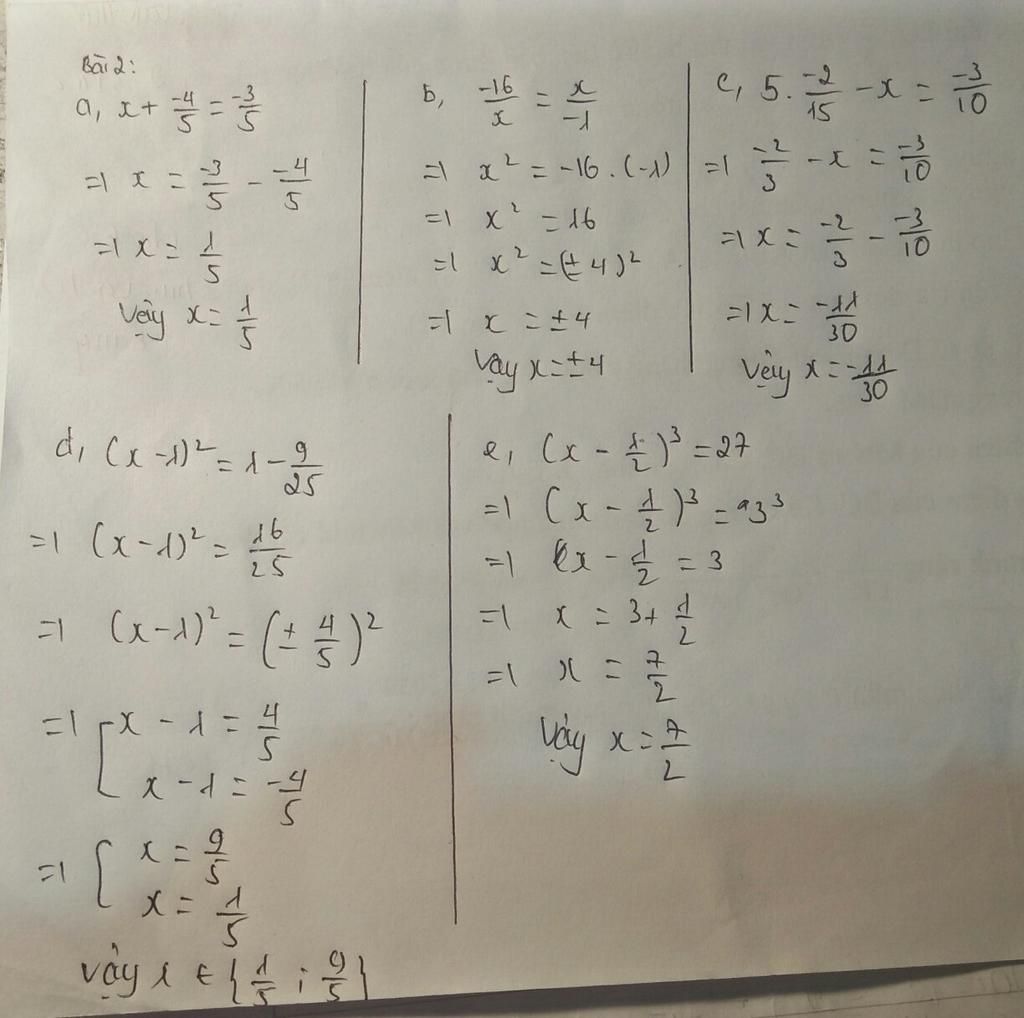 Bài 2:
a, x + -4/5 = -3/5
=) x = -3/5 - -4/5
=) x = 1/5
Vậy x = 1/5
b, -16/x = x/-1
=) x² = -16 . (-1)
=) x² = 16
=) x² = (±4)²
=) x = ±4
Vậy x = ±4
c, 5 . -2/15 - x = -3/10
=) -2/3 - x = -3/10
=) x = -2/3 - -3/10
=) x = -11/30
Vậy x = -11/30
d, (x - 1)² = 1 - 9/25
=) (x - 1)² = 16/25
=) (x - 1)² = (± 4/5)²
=) [ x - 1 = 4/5
x - 1 = -4/5
=) [ x = 9/5
x = 1/5
Vậy x ∈ {1/5 ; 9/5}
e, (x - 1/2)³ = 27
=) (x - 1/2)³ = 3³
=) x - 1/2 = 3
=) x = 3 + 1/2
=) x = 7/2
Vậy x = 7/2